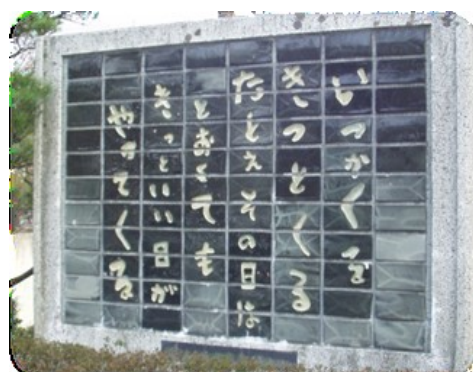 いつかくる
きっとくる
たとえその日は
とおくても
きっといい日が
やってくる